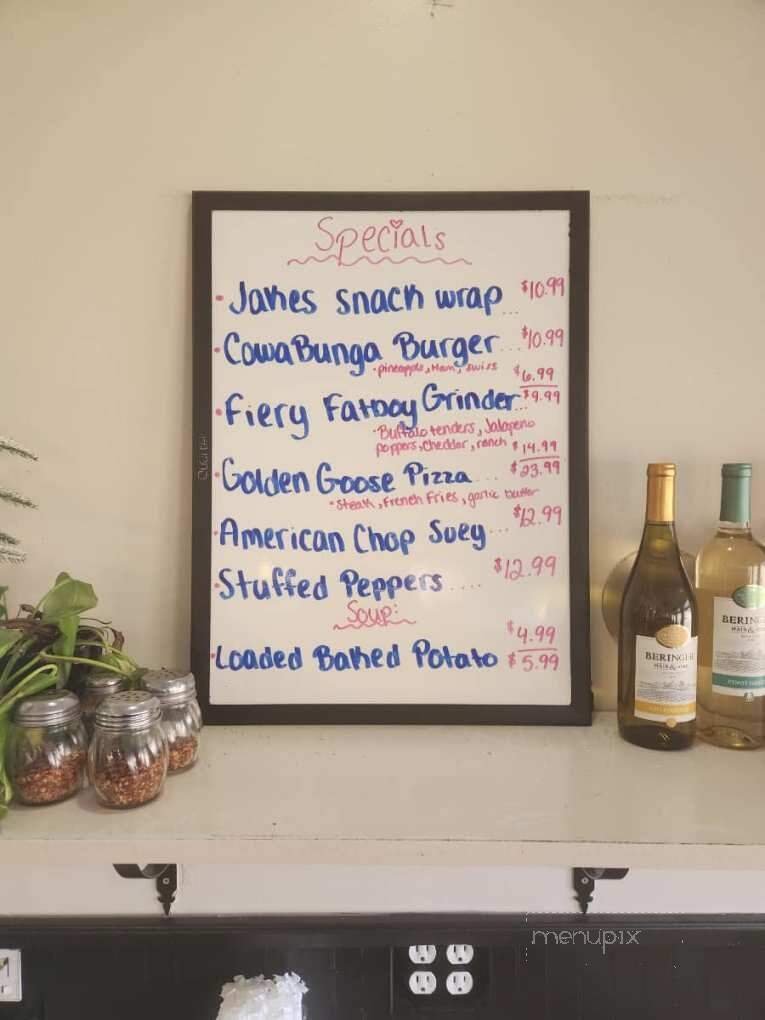 Specials
Jakes snack wrap $10.99
CowaBunga Burger ... $10.99
pineapple, Ham, swiss
$6.99
Fiery Fatboy Grinder... $9.99
Buffalo tenders, Jalapeno
poppers, Cheddar, ranch $14.99
Golden Goose Pizza ... $23.99
Steak, French Fries, garlic butter
American Chop Suey ... $12.99
Stuffed Peppers .... $12.99
Soup:
$4.99
Loaded Baked Potato $5.99
Quartet
BERINGER
MAIN & VINE
BERING
MAIN & VINE
menupix